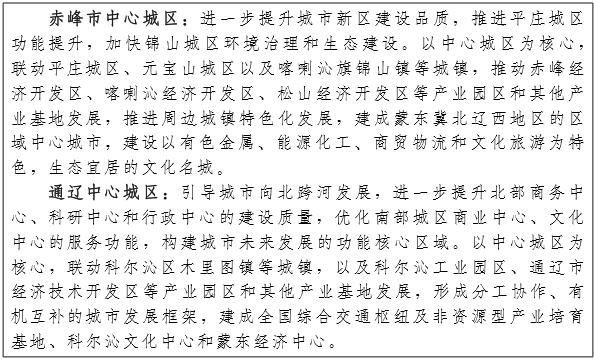 赤峰市中心城区：进一步提升城市新区建设品质，推进平庄城区
功能提升，加快锦山城区环境治理和生态建设。以中心城区为核心，
联动平庄城区、元宝山城区以及喀喇沁旗锦山镇等城镇，推动赤峰经
济开发区、喀喇沁经济开发区、松山经济开发区等产业园区和其他产
业基地发展，推进周边城镇特色化发展，建成蒙东冀北辽西地区的区
域中心城市，建设以有色金属、能源化工、商贸物流和文化旅游为特
色，生态宜居的文化名城。
通辽中心城区：引导城市向北跨河发展，进一步提升北部商务中
心、科研中心和行政中心的建设质量，优化南部城区商业中心、文化
中心的服务功能，构建城市未来发展的功能核心区域。以中心城区为
核心，联动科尔沁区木里图镇等城镇，以及科尔沁工业园区、通辽市
经济技术开发区等产业园区和其他产业基地发展，形成分工协作、有
机互补的城市发展框架，建成全国综合交通枢纽及非资源型产业培育
基地、科尔沁文化中心和蒙东经济中心。